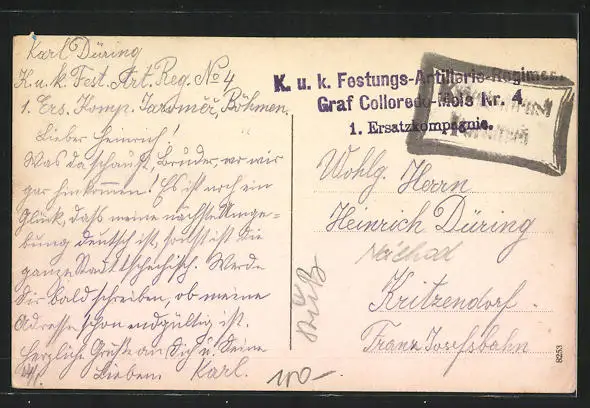 Karl Düring
K. u. k. Fest. Art. Reg. No 4
1. Ers. Komp. Jaroměř, Böhmen.
Lieber Heinrich!
Was da schaust, Bruder, wo wir
gar hinkommen! Es ist noch ein
Glück, dass meine nächste Umge-
bung deutsch ist, sonst ist die
ganze Stadt tschechisch. Werde
Dir bald schreiben, ob meine
Adresse schon endgültig ist.
Herzliche Grüße an Dich u. Deine
Lieben Karl.
K. u. k. Festungs-Artillerie-Regiment
Graf Colloredo-Mels Nr. 4
1. Ersatzkompagnie.
Wohlg. Herrn
Heinrich Düring
Náchod
Kritzendorf
Franz Josefsbahn
100-
8253